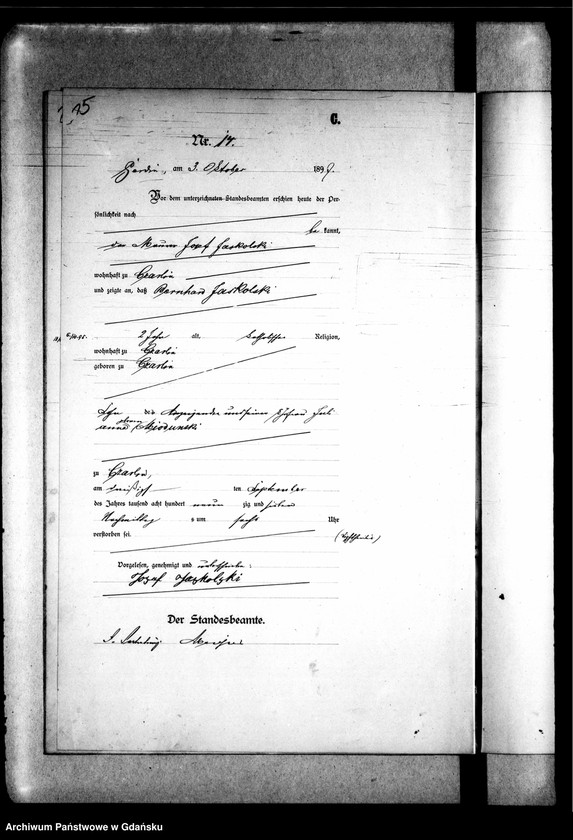 15
C.
Nr. 14.
am 3. Oktober 1897.
Vor dem unterzeichneten Standesbeamten erschien heute der Per-
sönlichkeit nach
be kannt,
der Maurer Josef Jaskolski
wohnhaft zu Czarlin
und zeigte an, daß Bernhard Jaskolski
2 Jahr alt, katholischer Religion,
wohnhaft zu Czarlin
geboren zu Czarlin
Sohn des Anzeigenden und seiner Ehefrau
zu Czarlin,
am dreißigsten September
des Jahres tausend acht hundert neun zig und sieben
Nachmittag s um sechs Uhr
verstorben sei.
Vorgelesen, genehmigt und unterschrieben:
Jozef Jaskolski
Der Standesbeamte.
Archiwum Państwowe w Gdańsku